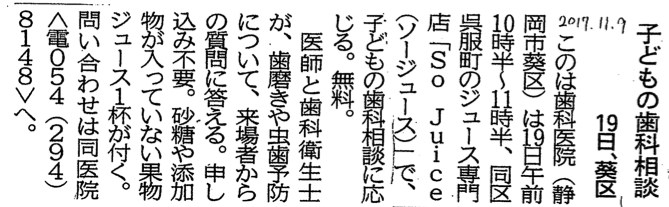 子どもの歯科相談
19日、葵区
2017.11.9
このは歯科医院（静
岡市葵区）は19日午前
10時半〜11時半、同区
呉服町のジュース専門
店「So Juice
（ソージュース）」で、
子どもの歯科相談に応
じる。無料。
医師と歯科衛生士
が、歯磨きや虫歯予防
について、来場者から
の質問に答える。申し
込み不要。砂糖や添加
物が入っていない果物
ジュース1杯が付く。
問い合わせは同医院
＜電054（294）
8148＞へ。